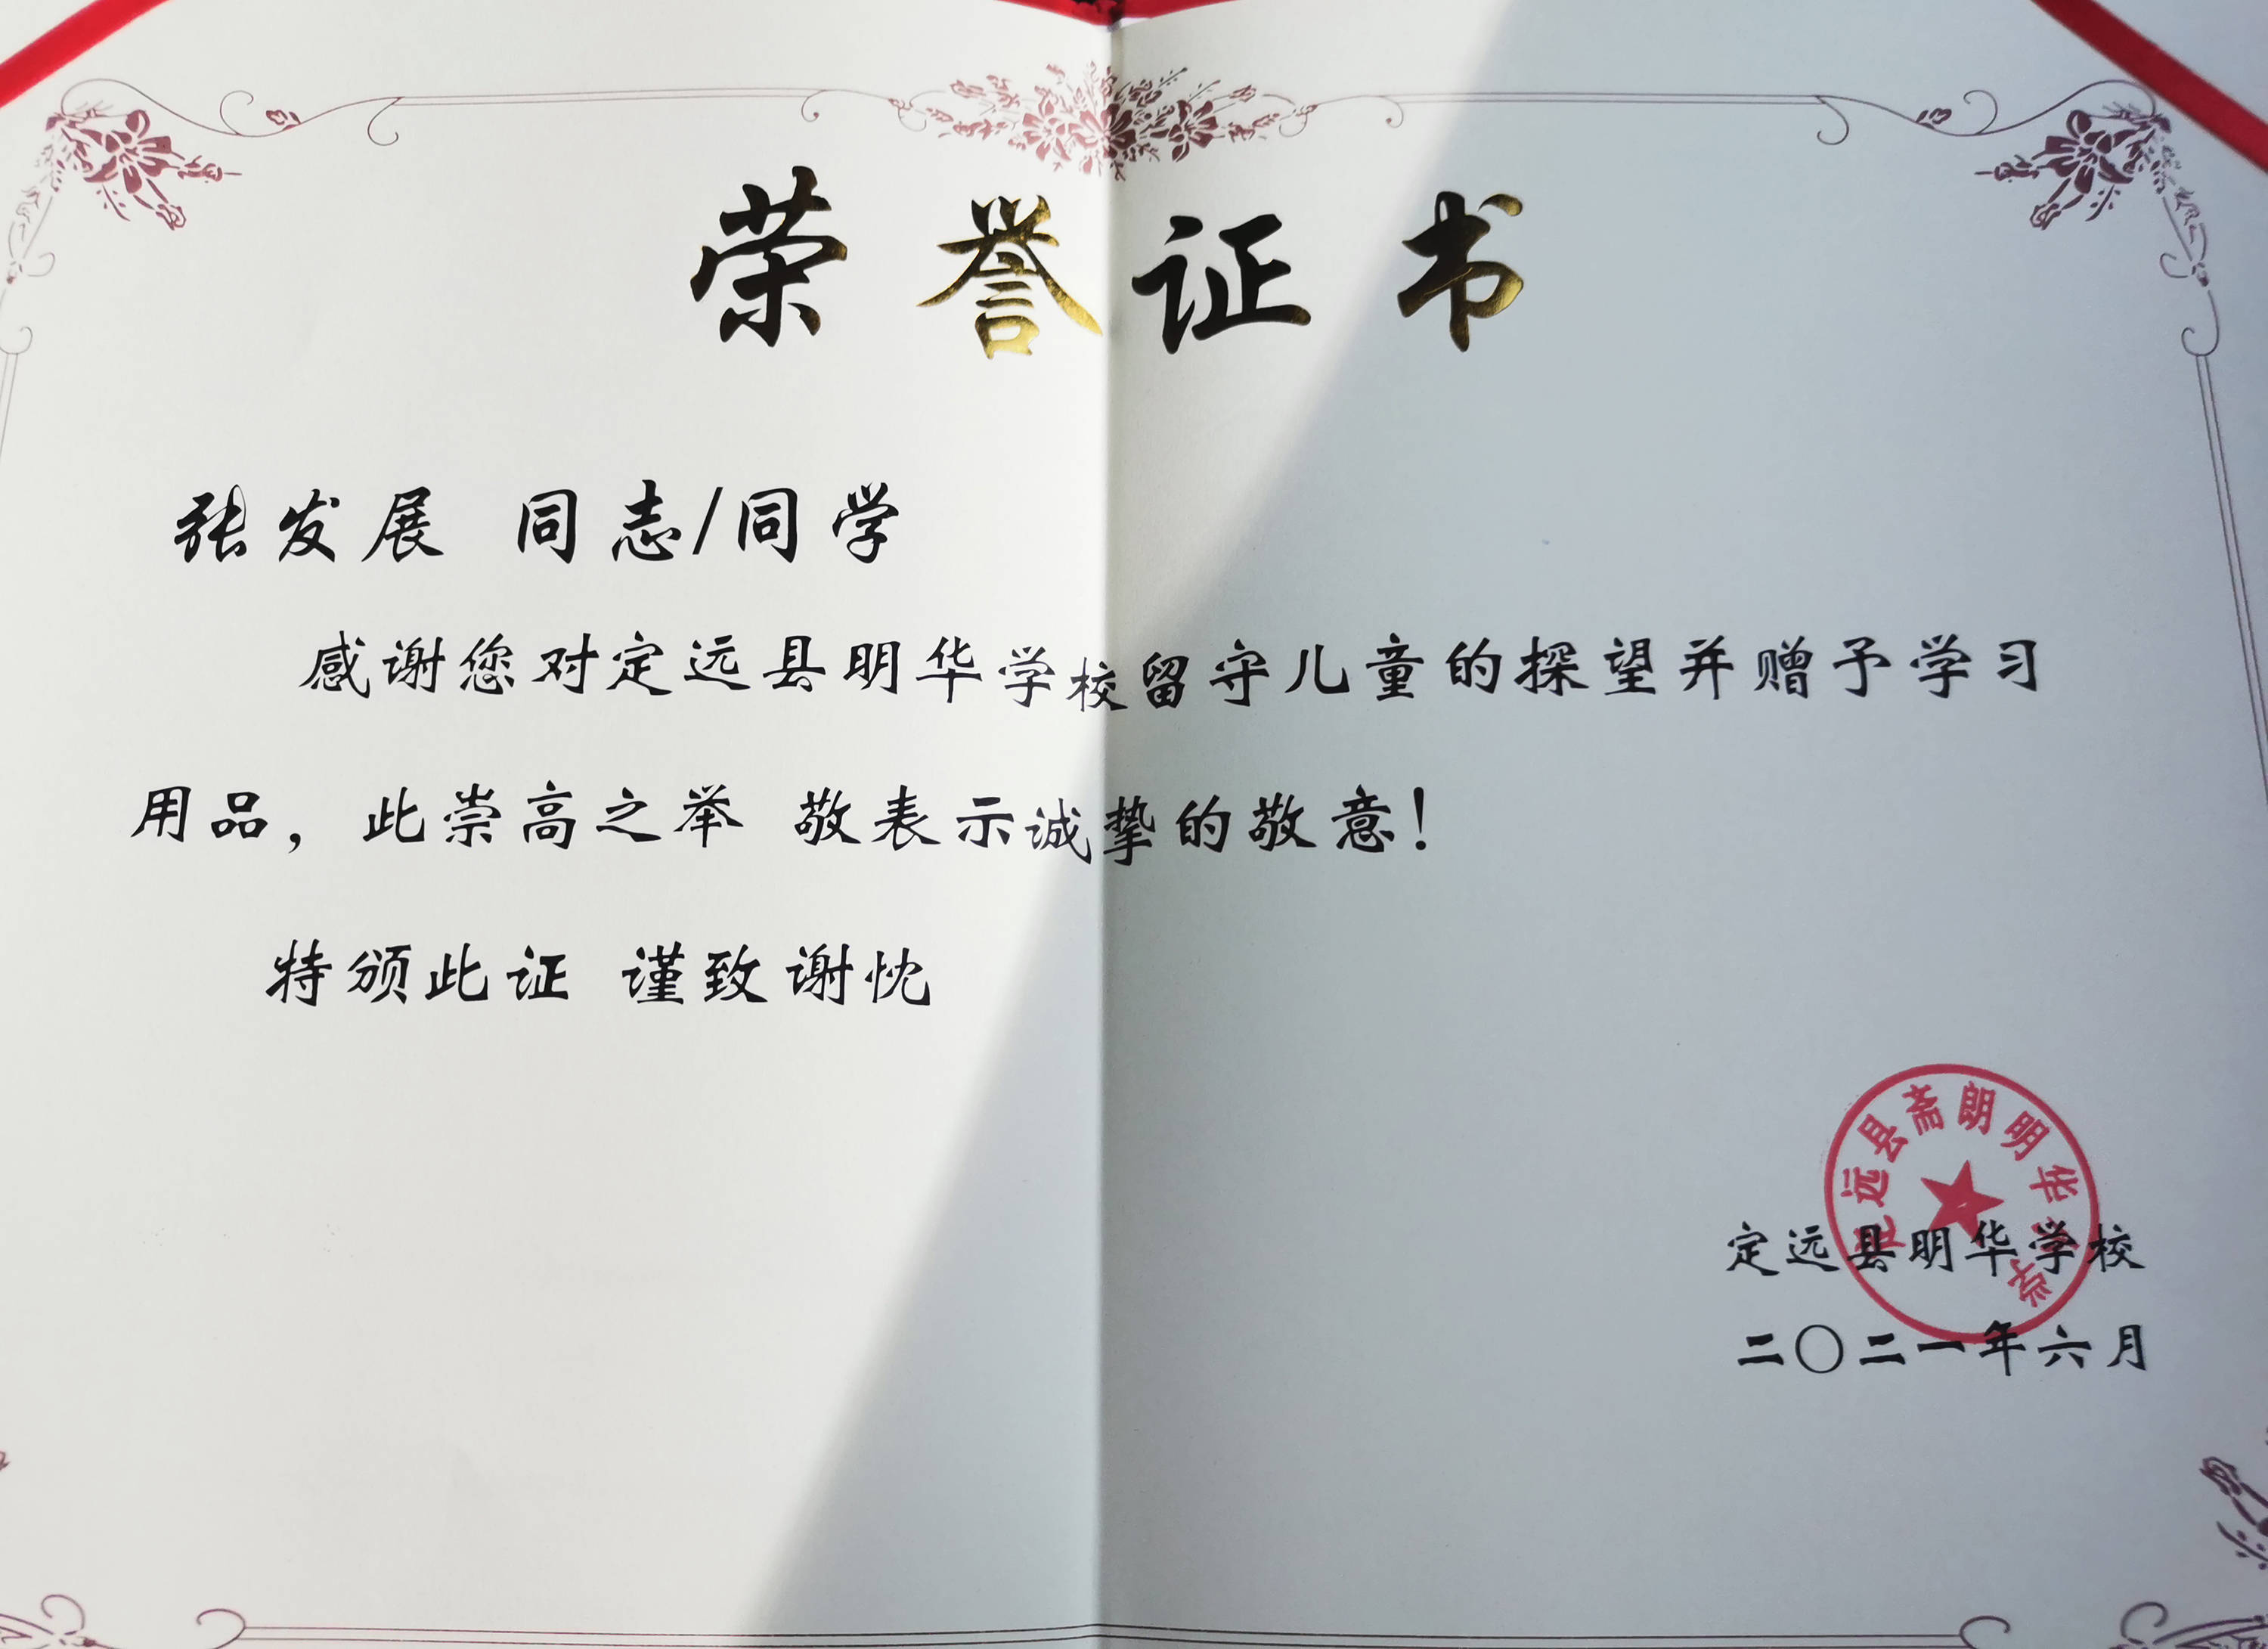 荣誉证书
张发展 同志/同学
感谢您对定远县明华学校留守儿童的探望并赠予学习
用品，此崇高之举 敬表示诚挚的敬意！
特颁此证 谨致谢忱
定远县斋朗明华学
定远县明华学校
二〇二一年六月